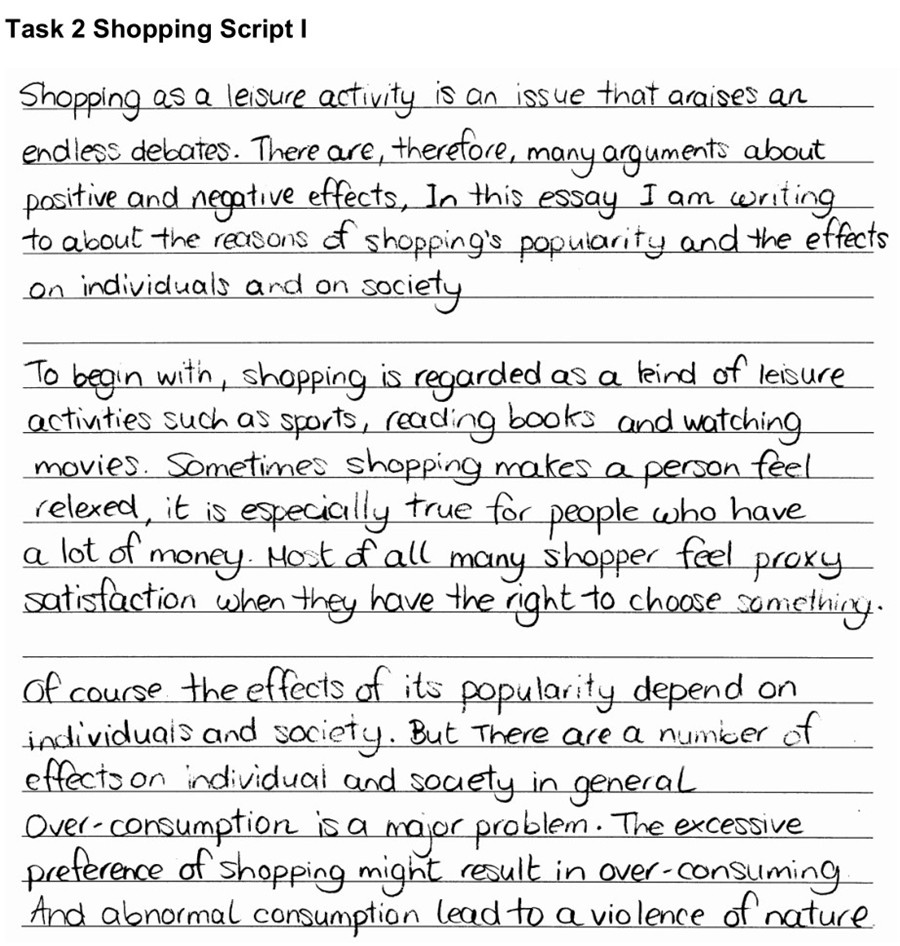 Task 2 Shopping Script I
Shopping as a leisure activity is an issue that araises an
endless debates. There are, therefore, many arguments about
positive and negative effects, In this essay I am writing
to about the reasons of shopping's popularity and the effects
on individuals and on society
To begin with, shopping is regarded as a kind of leisure
activities such as sports, reading books and watching
movies. Sometimes shopping makes a person feel
relexed, it is especially true for people who have
a lot of money. Most of all many shopper feel proxy
satisfaction when they have the right to choose something.
Of course the effects of its popularity depend on
individuals and society. But There are a number of
effects on individual and society in general
Over-consumption is a major problem. The excessive
preference of shopping might result in over-consuming
And abnormal consumption lead to a violence of nature